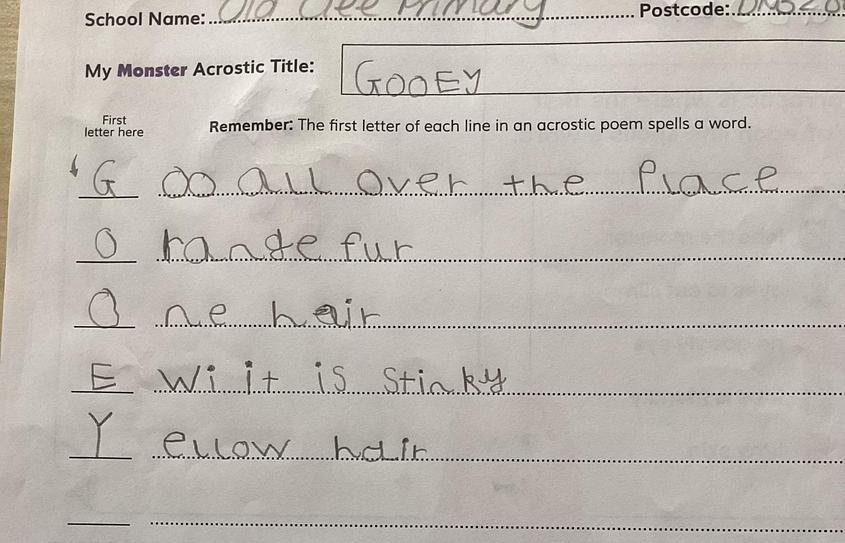 School Name: Old Clee Primary Postcode:
My Monster Acrostic Title: GOOEY
First
letter here
Remember: The first letter of each line in an acrostic poem spells a word.
G oo all over the Place
O range fur
O ne hair
E Wi it is Stinky
Y ellow hair